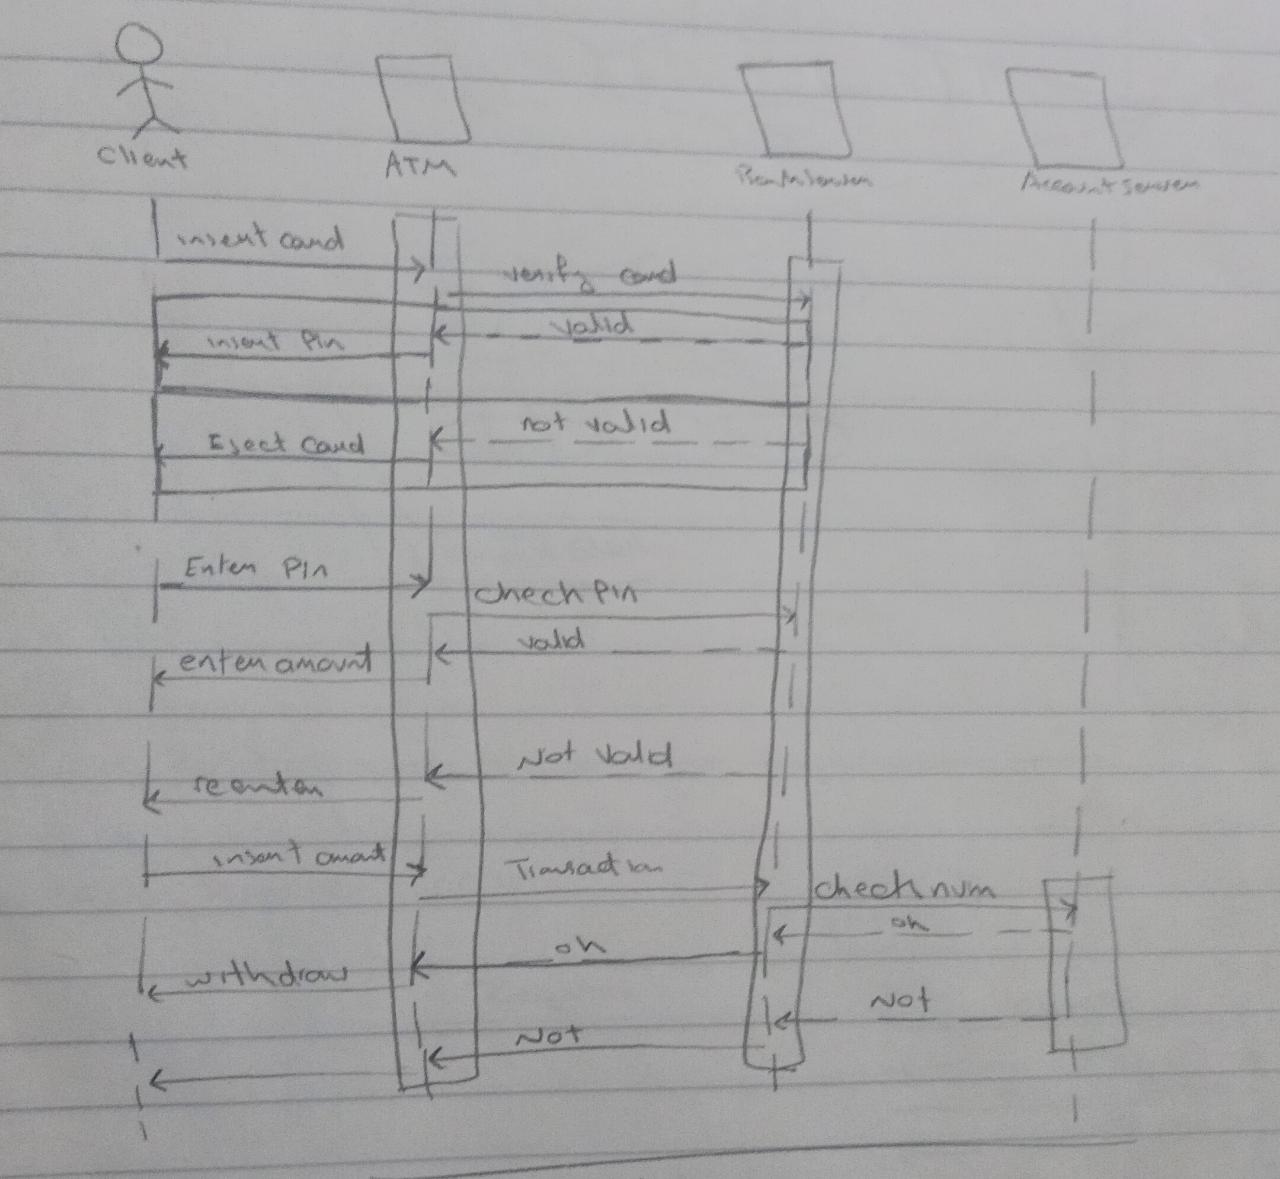 Client
ATM
Bank server
Account server
insert card
verify card
valid
insert pin
not valid
Eject card
Enter Pin
check Pin
valid
enter amount
Not valid
re enter
insert amount
Transaction
check num
ok
ok
withdraw
Not
Not